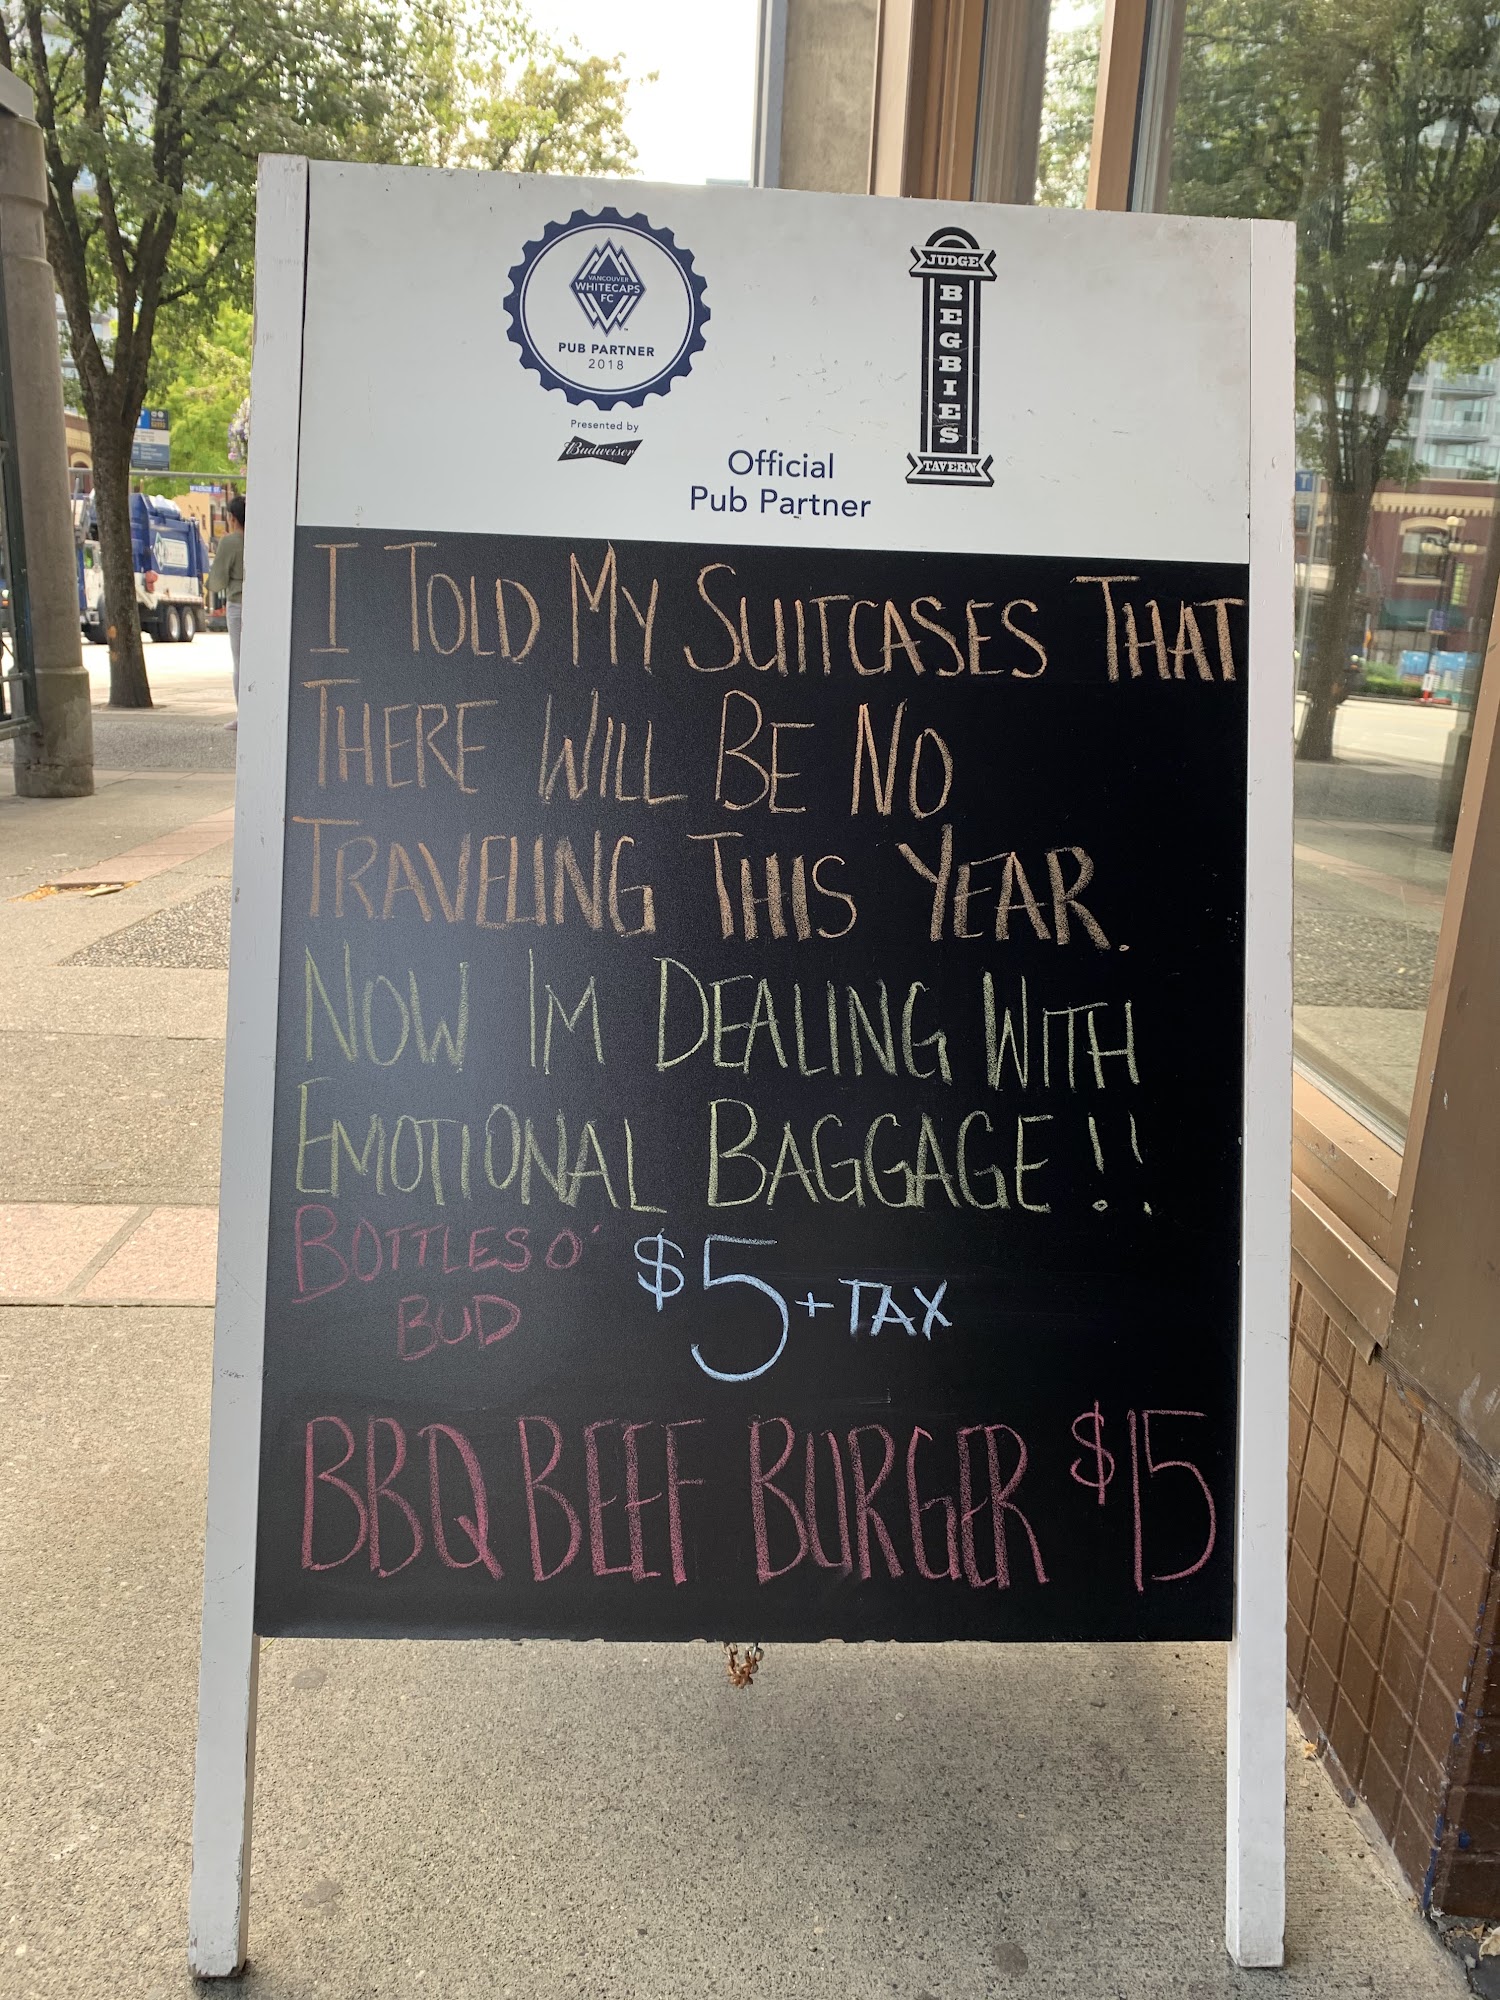 VANCOUVER
WHITECAPS
FC
PUB PARTNER
2018
Presented by
Budweiser
Official
Pub Partner
JUDGE
BEGBIES
TAVERN
I TOLD MY SUITCASES THAT
THERE WILL BE NO
TRAVELING THIS YEAR.
NOW IM DEALING WITH
EMOTIONAL BAGGAGE!!
BOTTLES O' $5 + TAX
BUD
BBQ BEEF BURGER $15